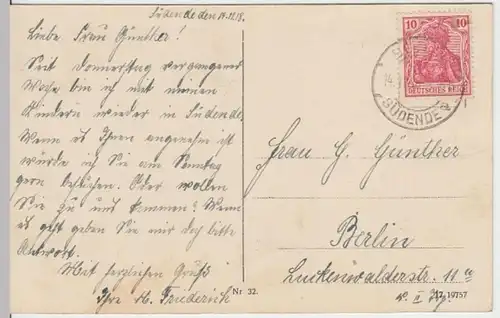 Südende den 14.12.18.
Liebe Frau Günther!
Seit Donnerstag vergangener
Woche bin ich mit meinen
Kindern wieder in Südende.
Wenn es Ihnen angenehm ist
würde ich Sie am Sonntag
gern besuchen. Oder wollen
Sie zu uns kommen? Wenn
es geht geben Sie mir doch bitte
Antwort.
Mit herzlichen Gruß
Ihre M. Friederich
10 10
DEUTSCHES REICH
SÜDENDE
Frau G. Günther
Berlin
Luckenwalderstr. 11
Nr 32.
19757